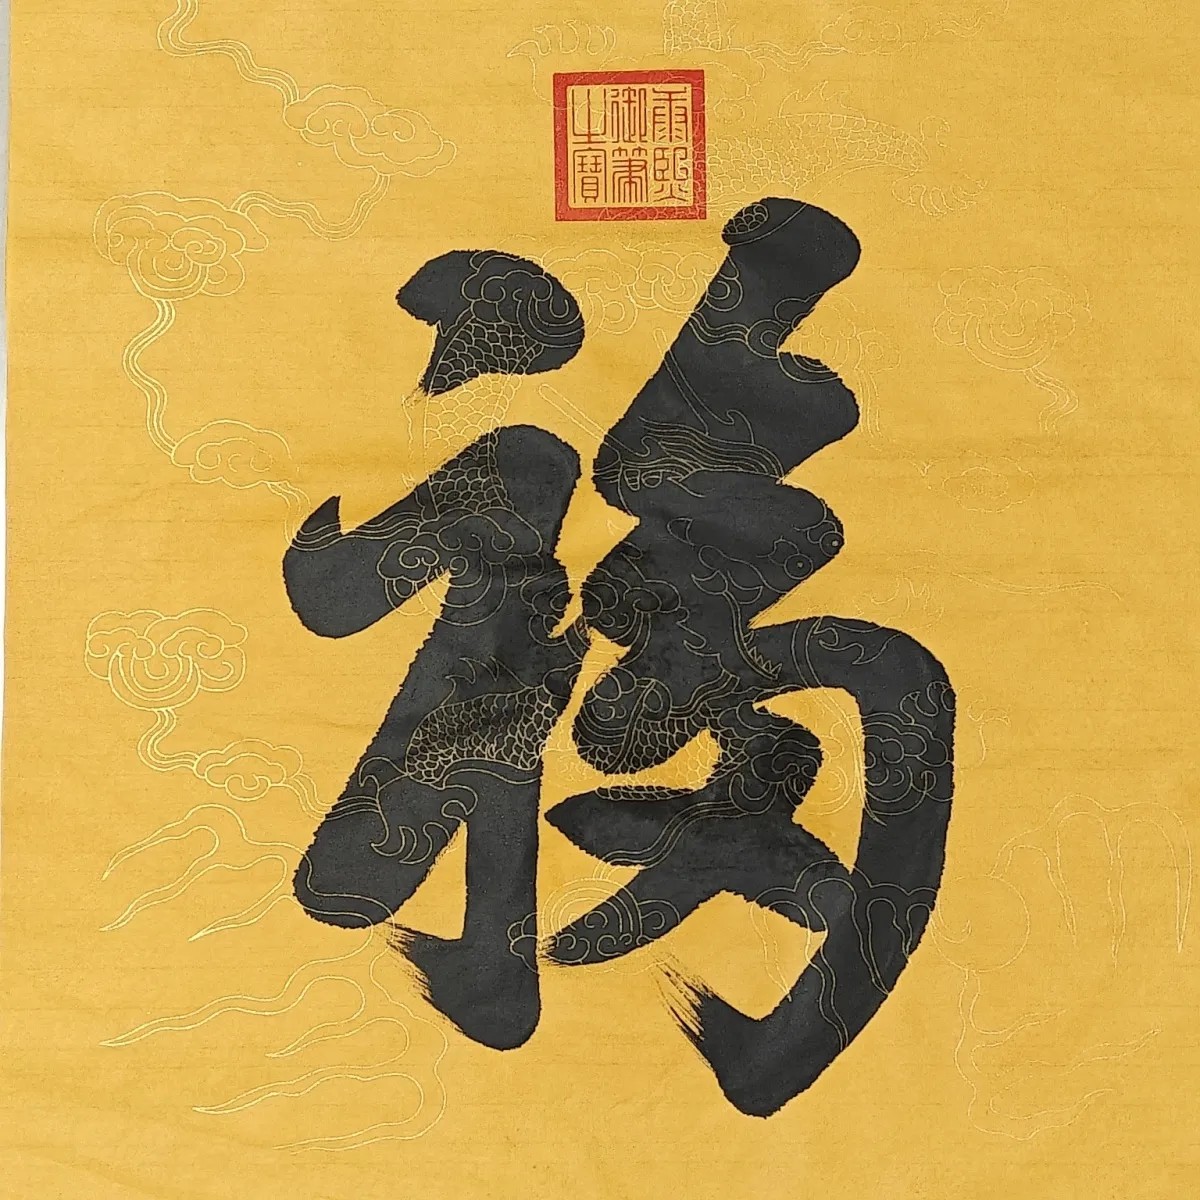 康熙
御筆
之寶
福